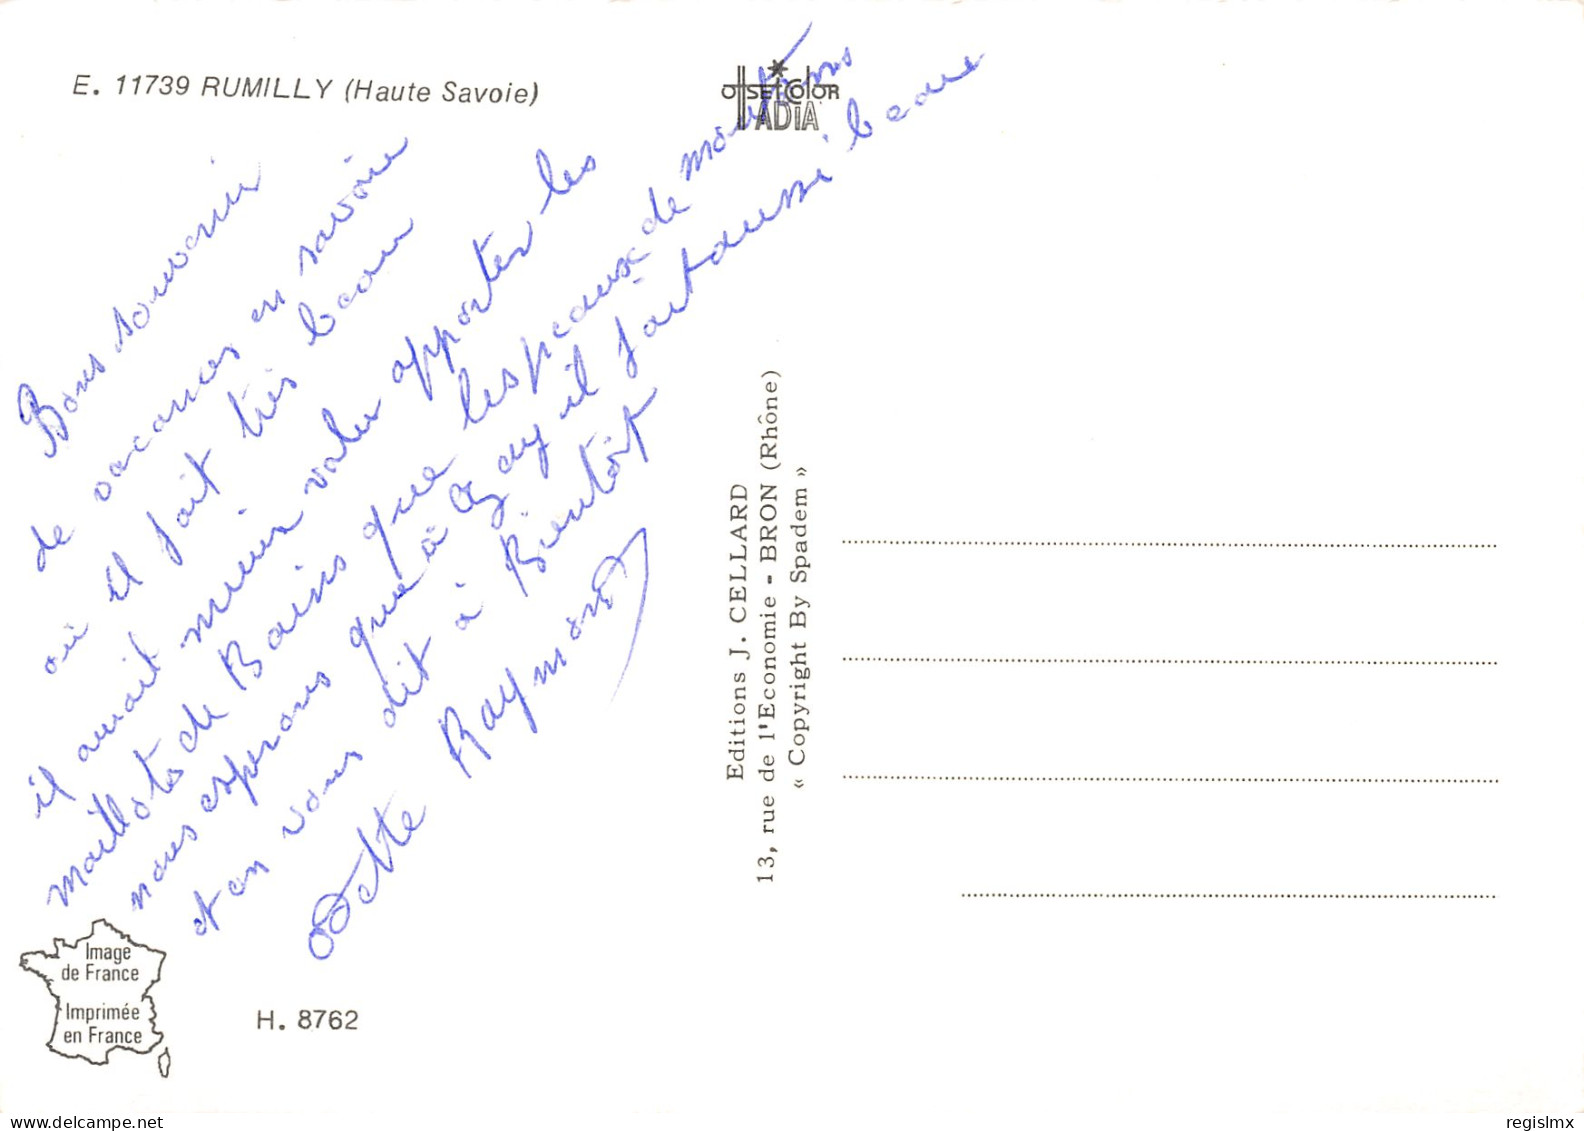 E. 11739 RUMILLY (Haute Savoie)
OffsEt Color
ADIA
Bons souvenir
de vacances en savoie
ou il fait très beau
il aurait mieux valu apporter les
maillots de Bains que les peaux de moutons
nous esperons que à Azay il fait aussi beau
et on vous dit à Bientôt
Odette Raymond
Editions J. CELLARD
13, rue de l'Economie - BRON (Rhône)
« Copyright By Spadem »
Image
de France
Imprimée
en France
H. 8762
delcampe.net
regislmx